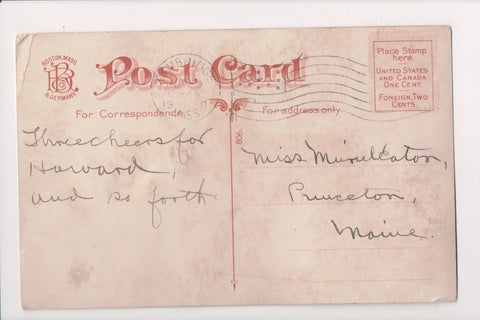 BOSTON, MASS.
& GERMANY.
Post Card
Place Stamp
here.
UNITED STATES
AND CANADA
ONE CENT.
FOREIGN, TWO
CENTS.
For Correspondence
For address only.
806.
Three cheers for
Harvard,
and so forth
Miss Muriel Eaton,
Princeton,
Maine.